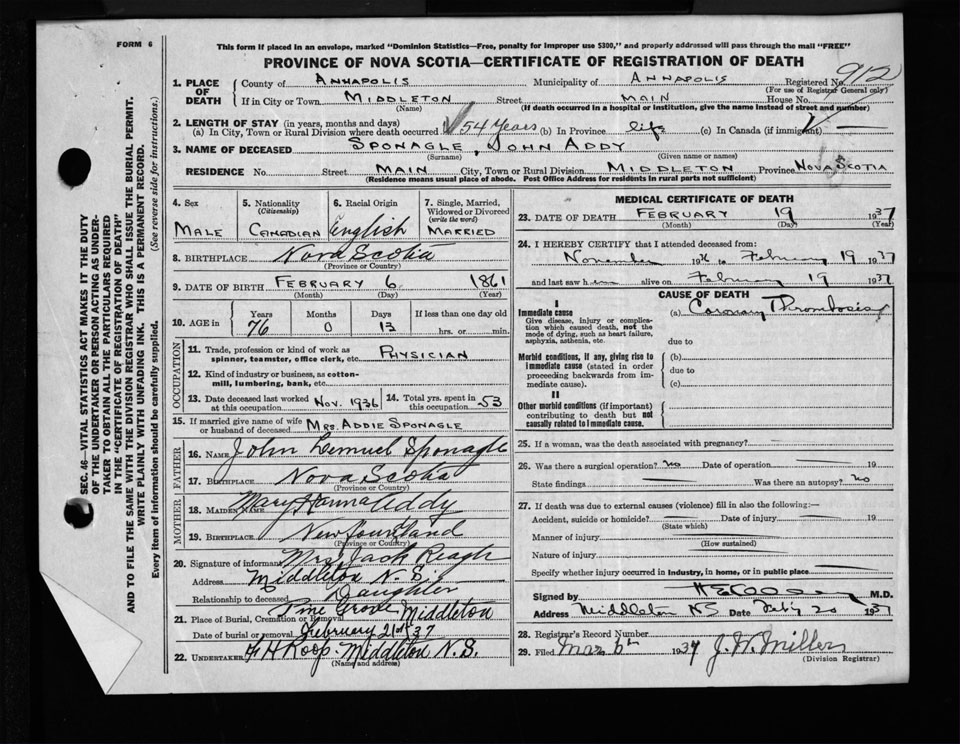 FORM 6
This form if placed in an envelope, marked "Dominion Statistics—Free, penalty for improper use $300," and properly addressed will pass through the mail "FREE"
PROVINCE OF NOVA SCOTIA—CERTIFICATE OF REGISTRATION OF DEATH
1. PLACE OF DEATH County of ANNAPOLIS Municipality of ANNAPOLIS Registered No. 912
(For use of Registrar General only)
If in City or Town MIDDLETON Street MAIN House No.
(Name) (If death occurred in a hospital or institution, give the name instead of street and number)
2. LENGTH OF STAY (in years, months and days)
(a) In City, Town or Rural Division where death occurred 54 Years (b) In Province life (c) In Canada (if immigrant) —
3. NAME OF DECEASED SPONAGLE, JOHN ADDY
(Surname) (Given name or names)
RESIDENCE No. Street MAIN City, Town or Rural Division MIDDLETON Province NOVA SCOTIA
(Residence means usual place of abode. Post Office Address for residents in rural parts not sufficient)
4. Sex MALE
5. Nationality (Citizenship) CANADIAN
6. Racial Origin English
7. Single, Married, Widowed or Divorced (write the word) MARRIED
8. BIRTHPLACE Nova Scotia
(Province or Country)
9. DATE OF BIRTH FEBRUARY 6 1861
(Month) (Day) (Year)
10. AGE in Years 76 Months 0 Days 13 If less than one day old hrs. or min.
OCCUPATION
11. Trade, profession or kind of work as spinner, teamster, office clerk, etc. PHYSICIAN
12. Kind of industry or business, as cotton-mill, lumbering, bank, etc.
13. Date deceased last worked at this occupation Nov. 1936 14. Total yrs. spent in this occupation 53
15. If married give name of wife or husband of deceased MRS. ADDIE SPONAGLE
FATHER
16. NAME John Lemuel Sponagle
17. BIRTHPLACE Nova Scotia
(Province or Country)
MOTHER
18. MAIDEN NAME Mary Hanna Addy
19. BIRTHPLACE Newfoundland
(Province or Country)
20. Signature of informant Mrs Jack Reagh
Address Middleton N.S.
Relationship to deceased Daughter
21. Place of Burial, Cremation or Removal Pine Grove Middleton
Date of burial or removal February 21st 37
22. UNDERTAKER F H Roop. Middleton N.S.
(Name and address)
MEDICAL CERTIFICATE OF DEATH
23. DATE OF DEATH FEBRUARY 19 1937
(Month) (Day) (Year)
24. I HEREBY CERTIFY that I attended deceased from:
November 1936 to February 19 1937
and last saw h alive on February 19 1937
CAUSE OF DEATH
I
Immediate cause (a) Coronary Thrombosis
Give disease, injury or complication which caused death, not the mode of dying, such as heart failure, asphyxia, asthenia, etc.
due to
Morbid conditions, if any, giving rise to immediate cause (stated in order proceeding backwards from immediate cause).
(b)
due to
(c)
II
Other morbid conditions (if important) contributing to death but not causally related to immediate cause.
25. If a woman, was the death associated with pregnancy?
26. Was there a surgical operation? no Date of operation 19
State findings Was there an autopsy? no
27. If death was due to external causes (violence) fill in also the following:—
Accident, suicide or homicide? Date of injury 19
(State which)
Manner of injury
(How sustained)
Nature of injury
Specify whether injury occurred in industry, in home, or in public place
Signed by M.D.
Address Middleton NS Date Feb'y 20 1937
28. Registrar's Record Number
29. Filed Mar 6th 1937 J. W. Miller
(Division Registrar)
SEC. 46—VITAL STATISTICS ACT MAKES IT THE DUTY
OF THE UNDERTAKER OR PERSON ACTING AS UNDERTAKER TO OBTAIN ALL THE PARTICULARS REQUIRED
IN THE "CERTIFICATE OF REGISTRATION OF DEATH"
AND TO FILE THE SAME WITH THE DIVISION REGISTRAR WHO SHALL ISSUE THE BURIAL PERMIT.
WRITE PLAINLY WITH UNFADING INK. THIS IS A PERMANENT RECORD.
Every item of information should be carefully supplied. (See reverse side for instructions.)